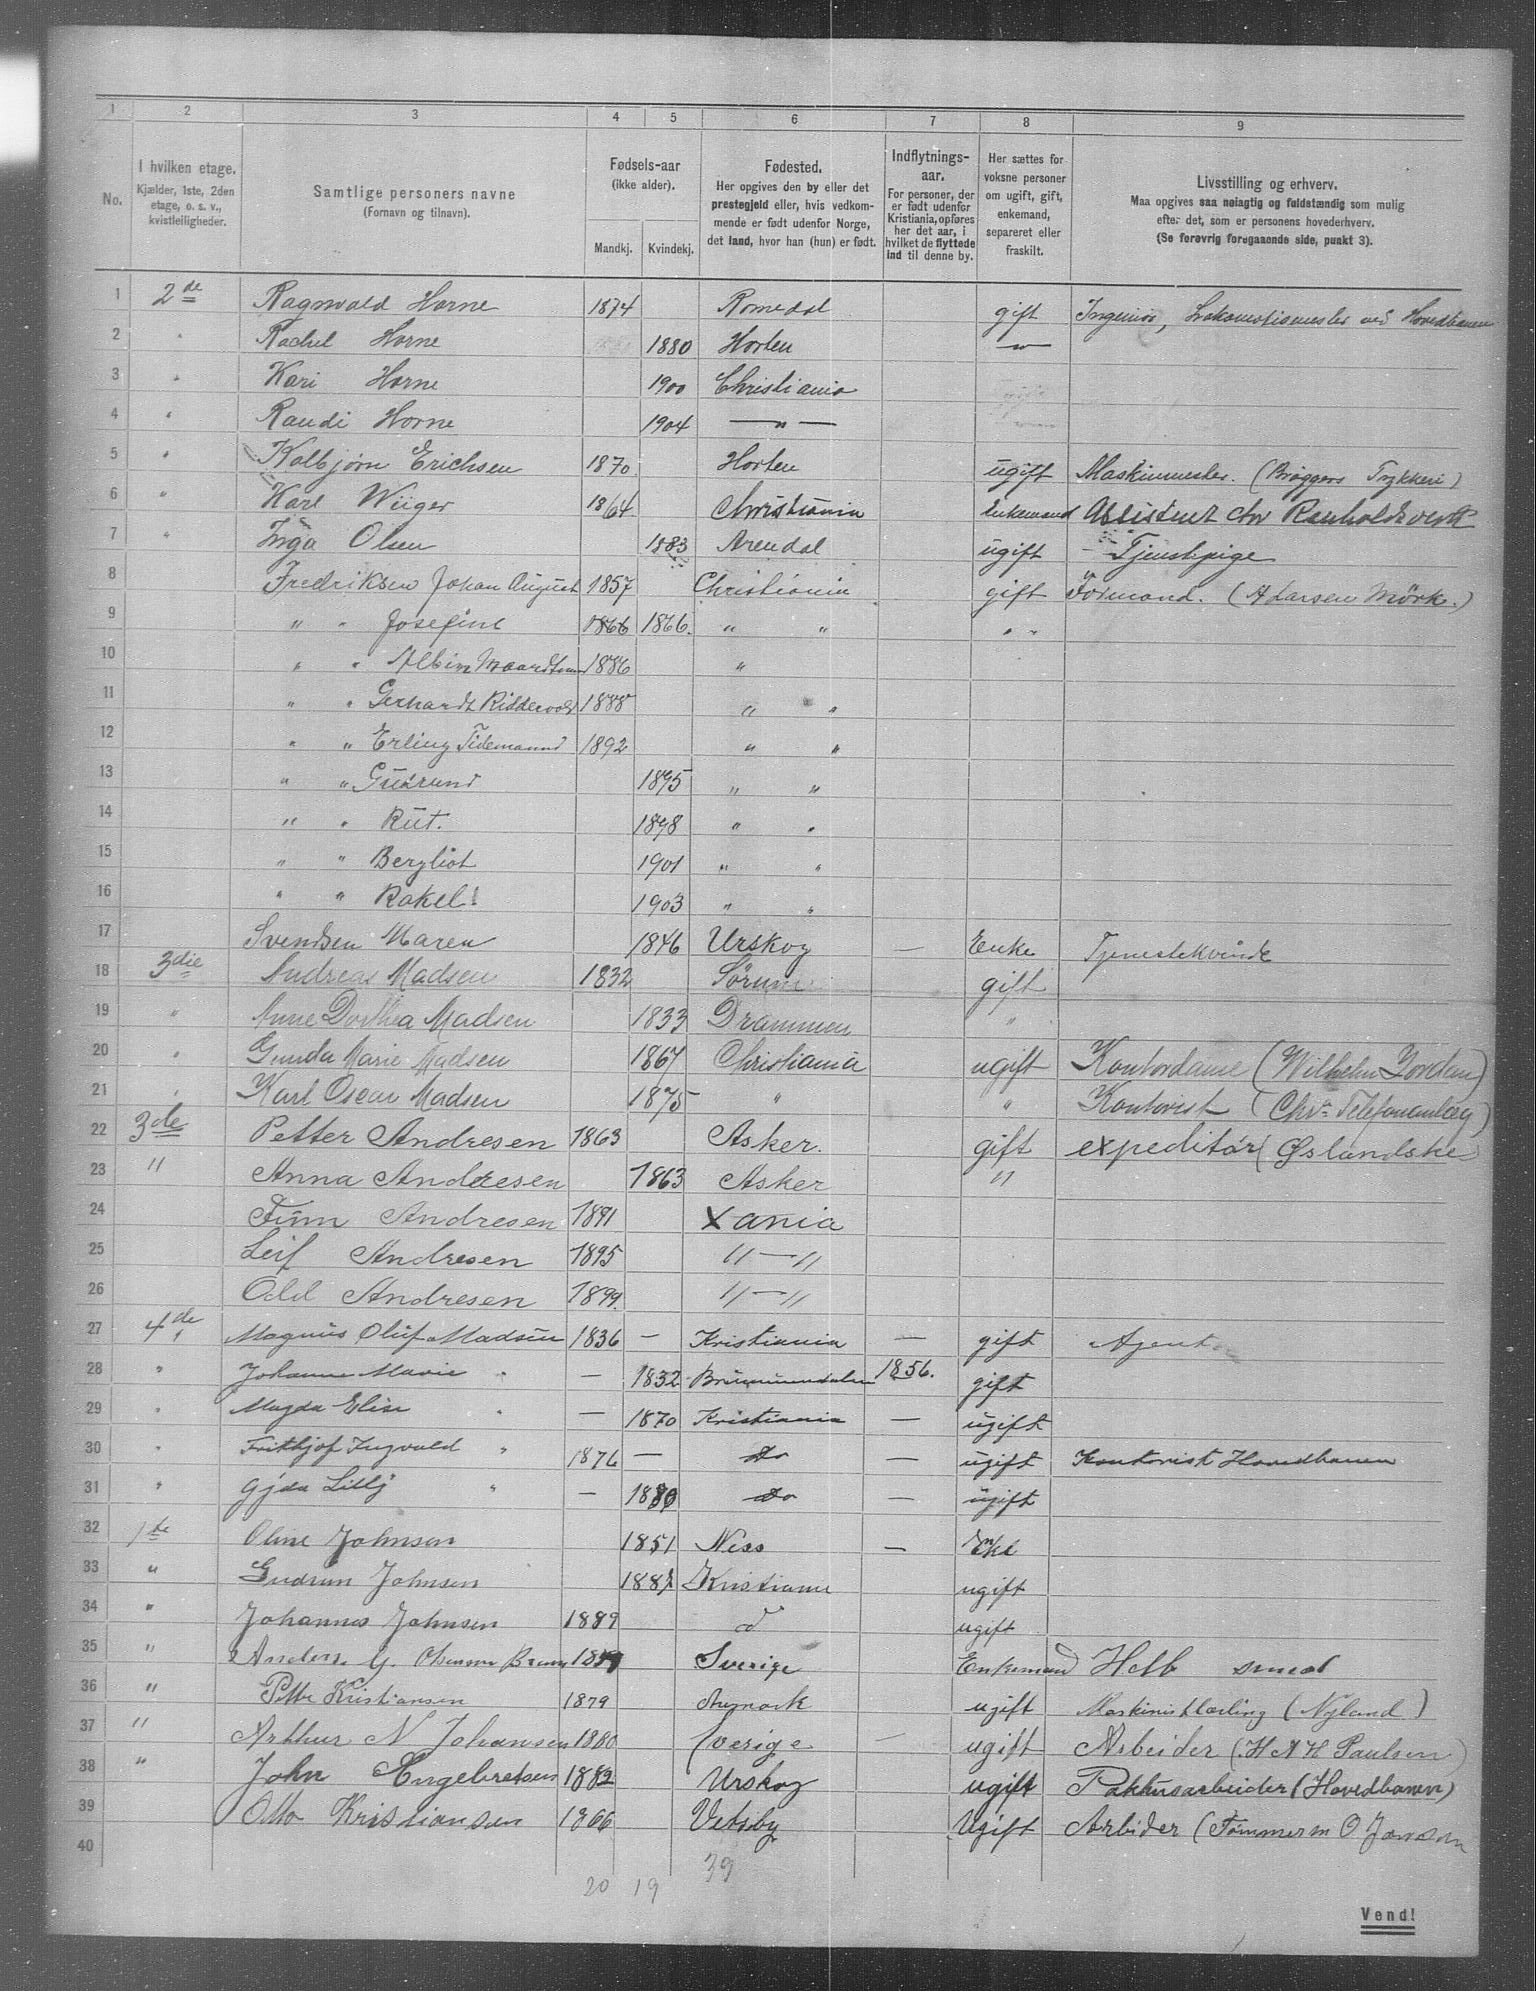 1 2 3 4 5 6 7 8 9
No. I hvilken etage. Kjælder, 1ste, 2den etage, o. s. v., kvistleiligheder. Samtlige personers navne (Fornavn og tilnavn). Fødsels-aar (ikke alder). Mandkj. Kvindekj. Fødested. Her opgives den by eller det prestegjeld eller, hvis vedkommende er født udenfor Norge, det land, hvor han (hun) er født. Indflytnings-aar. For personer, der er født udenfor Kristiania, opføres her det aar, i hvilket de flyttede ind til denne by. Her sættes for voksne personer om ugift, gift, enkemand, separeret eller fraskilt. Livsstilling og erhverv. Maa opgives saa nøiagtig og fuldstændig som mulig efter det, som er personens hovederhverv. (Se forøvrig foregaaende side, punkt 3).
1 2de Ragnvald Horne 1874 Romedal gift Ingeniør, Lokomotivmester ved Hovedbanen
2 " Rachel Horne 1880 Horten — " —
3 " Kari Horne 1900 Christiania
4 " Randi Horne 1904 — " —
5 " Kolbjørn Erichsen 1870 Horten ugift Maskinmester. (Brøggers Trykkeri)
6 " Karl Wiiger 1864 Christiania Enkemand Assistent Renholdsverk
7 " Inga Olsen 1883 Arendal ugift - Tjenestepige
8 Fredriksen Johan August 1857 Christiania gift Formand. (A Larsen Mörk.)
9 " " Josefine 1866 1866. " " " "
10 " " Albin 1886 "
11 " " Gerhardt Riddervold 1888 " "
12 " " Erling Tidemannd 1892 " "
13 " " Gudrund 1895 " "
14 " " Rut. 1898 " "
15 " " Bergliot 1901 " "
16 " " Rakel. 1903 " "
17 Svendsen Maren 1846 Urskog — Enke Tjenestekvinde
18 3die Andreas Madsen 1832 Sørum gift
19 " Anne Dorthea Madsen 1833 Drammen "
20 " Gunda Marie Madsen 1867 Christiania ugift Kontordame (Wilhelm Jordan)
21 " Karl Oscar Madsen 1875 " " Kontorist (Chr.a Telefonanlæg)
22 3de Petter Andresen 1863 Asker. gift expeditör (Øslandske
23 " Anna Andresen 1863 Asker "
24 Finn Andresen 1891 Xania
25 Leif Andresen 1895 " — "
26 Odd Andresen 1899. " — "
27 4de Magnus Oluf Madsen 1836 — Kristiania — gift Agent
28 " Johanne Marie " — 1832 Brummundalen 1856. gift
29 " Magda Elise " — 1870 Kristiania — ugift
30 " Frithjof Ingvald " 1876 — Do — ugift Kontorist Hovedbanen
31 " Gyda Lilly " — 1880 Do — ugift
32 1ste Oline Johnsen 1851 Ness — Enke
33 " Gudrun Johnsen 1882 Kristiania ugift
34 " Johannes Johnsen 1889 d ugift
35 " Anders G. 1859 Sverige Enkemand smed
36 " Petter Kristiansen 1879 ugift Maskinistlærling (Nyland)
37 " Arthur N Johansen 1880 Sverige — ugift Arbeider (H A H Paulsen)
38 " John Engebretsen 1882 Urskog ugift Pakhusarbeider (Hovedbanen)
39 Otto Kristiansen 1866 Vetsby Ugift Arbider (Tömmerm O Jansson
40
20 19 39
Vend!